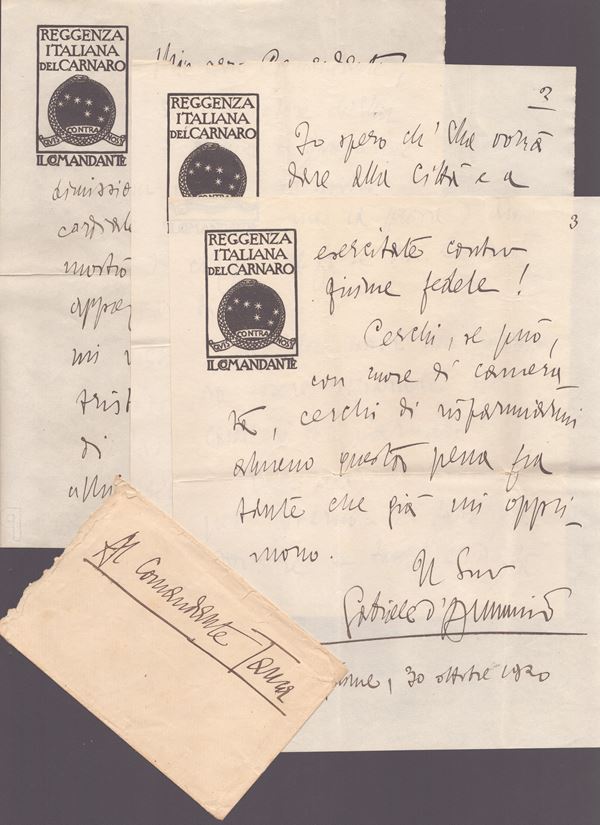 REGGENZA
ITALIANA
DEL CARNARO
QVIS CONTRA NOS
IL COMANDANTE
dimissio
mostrò
mi
trist
di
REGGENZA
ITALIANA
DEL CARNARO
CONTRA
2
Io spero ch'Ella vorrà
dare alla Città e a
REGGENZA
ITALIANA
DEL CARNARO
QVIS CONTRA NOS
IL COMANDANTE
3
esercitate contro
Fiume fedele!
Cerchi, se può,
con cuore di camera
ta, cerchi di risparmiarmi
almeno questa pena fra
tante che già mi oppri
mono.
Il Suo
Gabriele d'Annunzio
Fiume, 30 ottobre 1920
Al Comandante